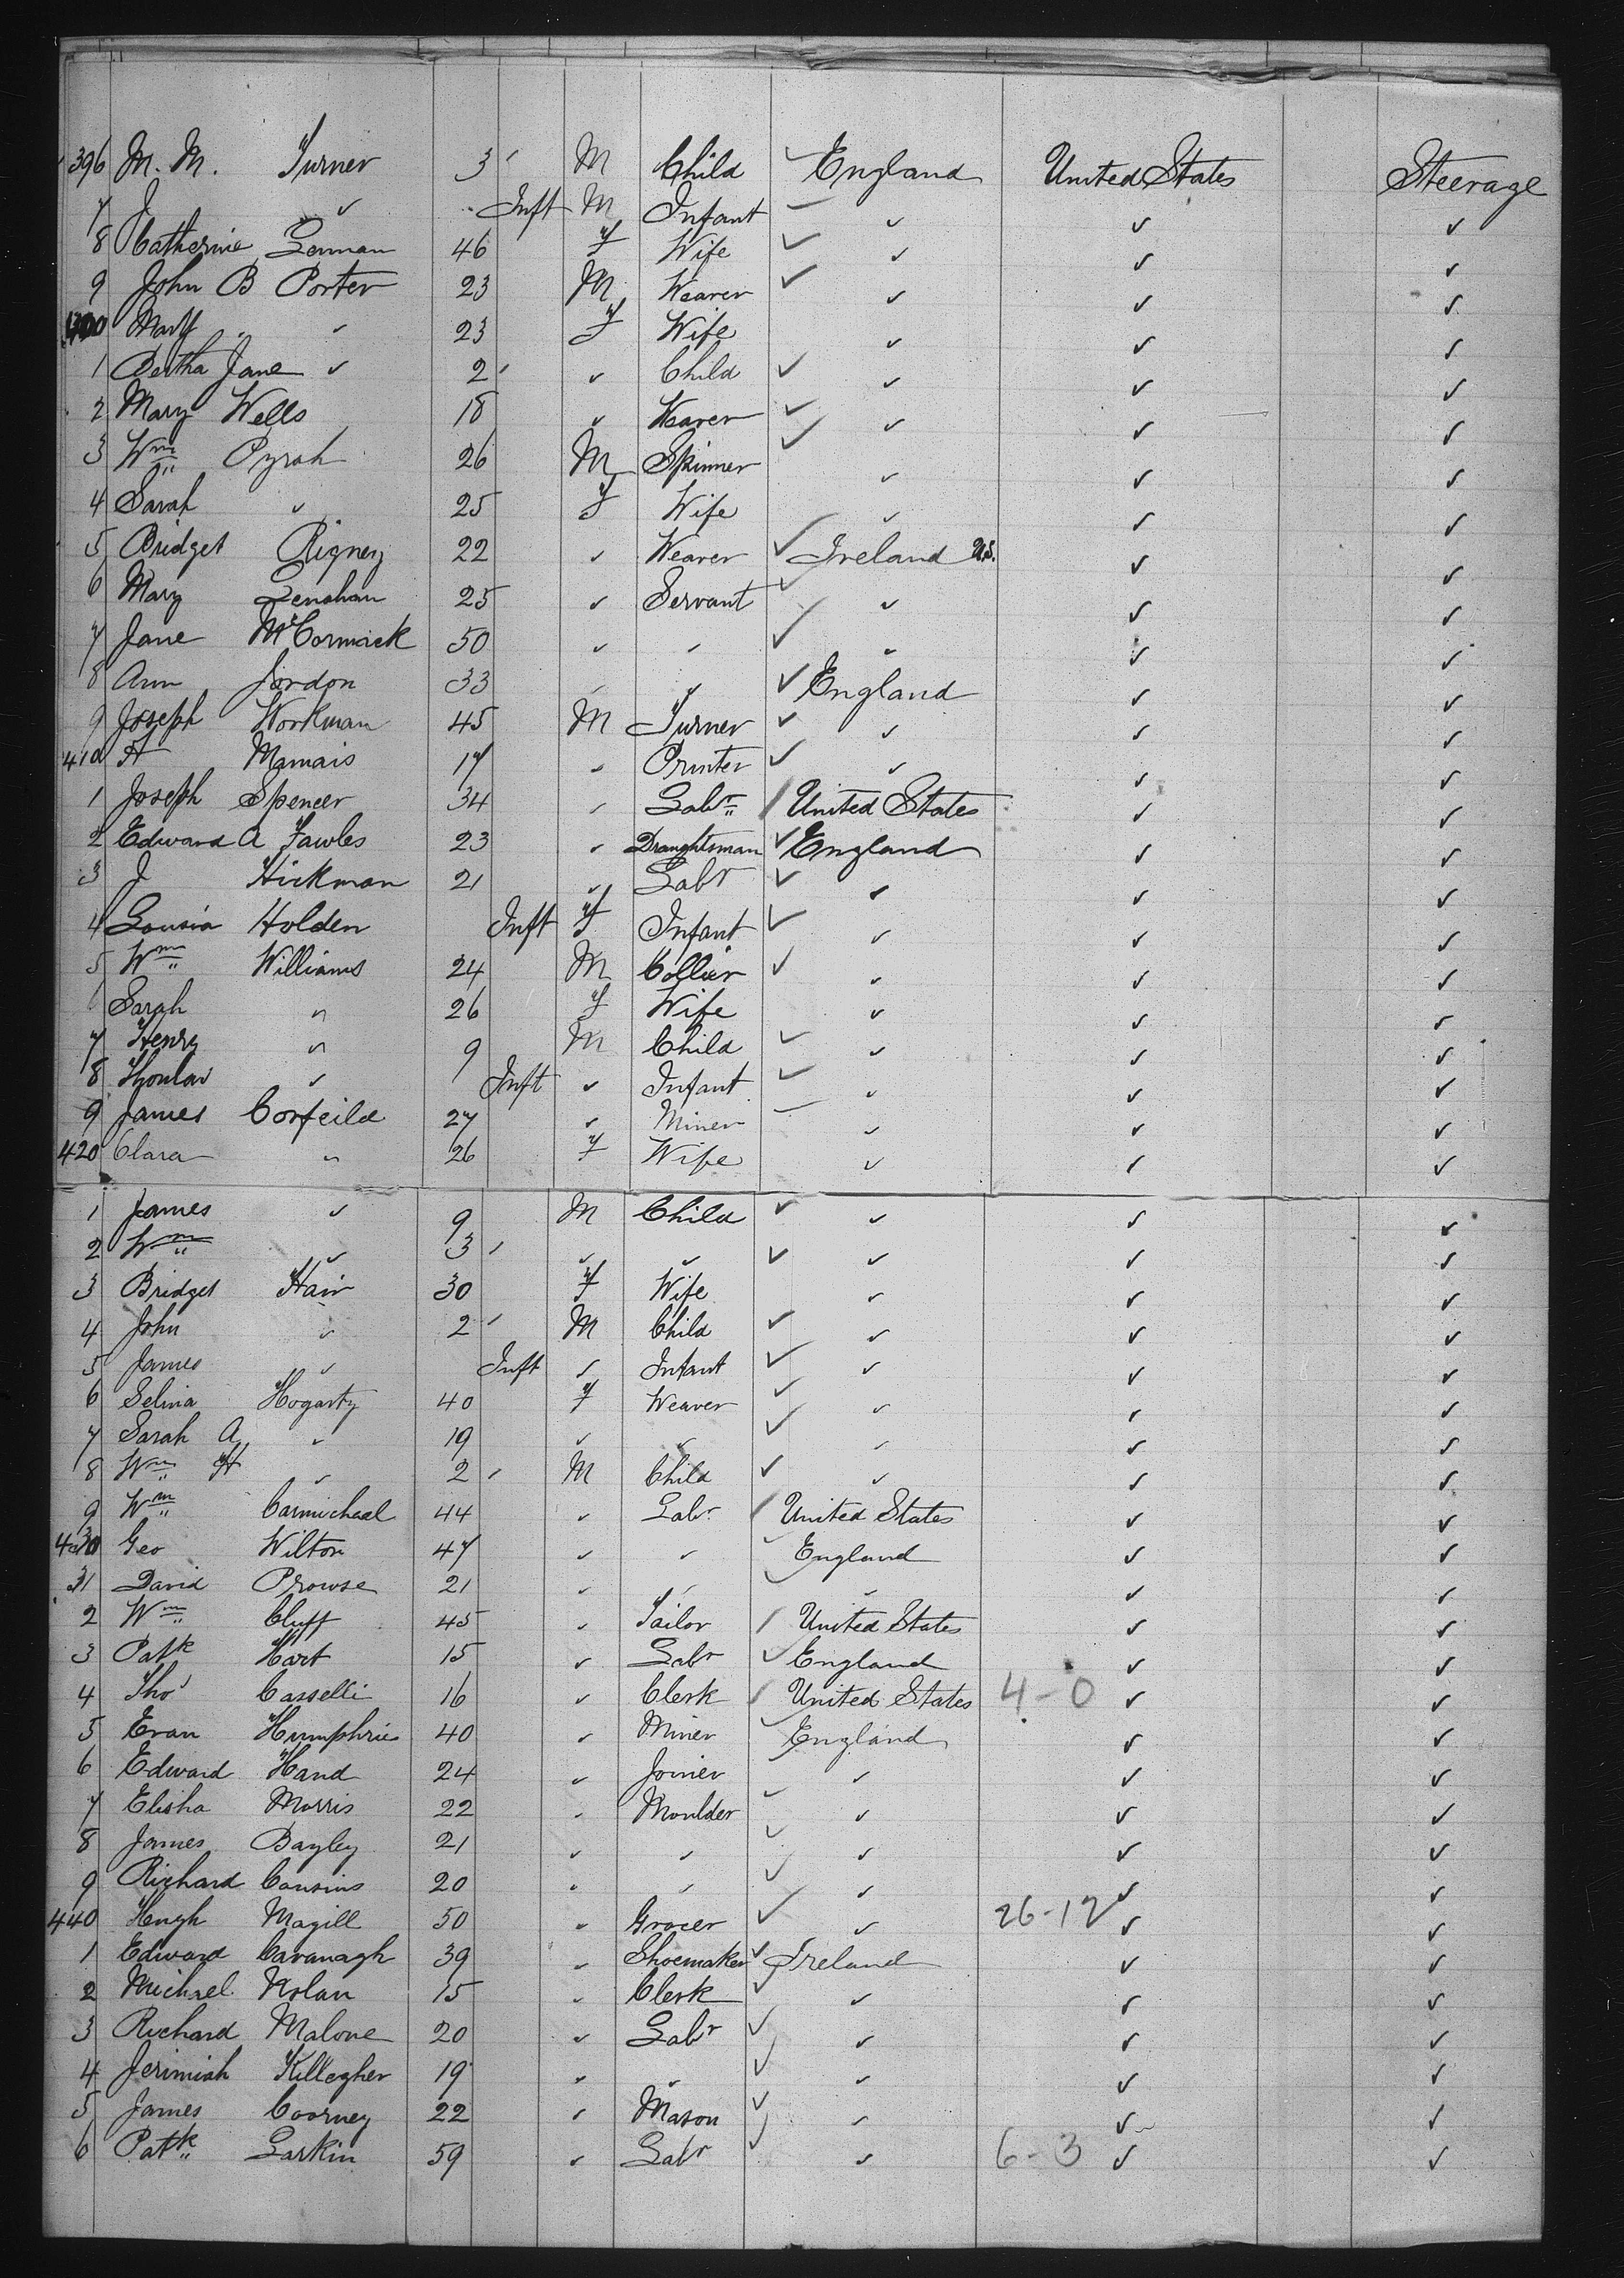 396 M. M. Turner 3 M Child ✓ England United States Steerage
7 J ✓ Inft M Infant ✓ ✓ ✓
8 Catherine Lennan 46 F Wife ✓ ✓ ✓ ✓
9 John B Porter 23 M Weaver ✓ ✓ ✓ ✓
400 Mary ✓ 23 F Wife ✓ ✓ ✓
1 Bertha Jane ✓ 2 ✓ Child ✓ ✓ ✓ ✓
2 Mary Wells 18 ✓ Weaver ✓ ✓ ✓ ✓
3 Wm Pyrah 26 M Spinner ✓ ✓ ✓ ✓
4 Sarah ✓ 25 F Wife ✓ ✓ ✓
5 Bridget Rigney 22 ✓ Weaver ✓ Ireland U.S. ✓ ✓
6 Mary Lenahan 25 ✓ Servant ✓ ✓ ✓ ✓
7 Jane McCormack 50 ✓ ✓ ✓ ✓ ✓ ✓
8 Ann Jordon 33 ✓ ✓ ✓ England ✓ ✓
9 Joseph Workman 45 M Turner ✓ ✓ ✓ ✓
410 A Mamais 17 ✓ Printer ✓ ✓ ✓ ✓
1 Joseph Spencer 34 ✓ Labr United States ✓ ✓
2 Edward A Fawles 23 ✓ Draughtsman ✓ England ✓ ✓
3 J Hickman 21 ✓ Labr ✓ ✓ ✓ ✓
4 Lousia Holden Inft F Infant ✓ ✓ ✓ ✓
5 Wm Williams 24 M Collier ✓ ✓ ✓ ✓
6 Sarah " 26 F Wife ✓ ✓ ✓
7 Henry " 9 M Child ✓ ✓ ✓ ✓
8 ✓ Inft ✓ Infant ✓ ✓ ✓ ✓
9 James Corfeild 27 ✓ Miner ✓ ✓ ✓
420 Clara " 26 F Wife ✓ ✓ ✓
1 James ✓ 9 M Child ✓ ✓ ✓ ✓
2 Wm ✓ 3 ✓ ✓ ✓ ✓ ✓ ✓
3 Bridget Hair 30 F Wife ✓ ✓ ✓
4 John ✓ 2 M Child ✓ ✓ ✓ ✓
5 James ✓ Inft ✓ Infant ✓ ✓ ✓ ✓
6 Selina Hogarty 40 F Weaver ✓ ✓ ✓ ✓
7 Sarah A ✓ 19 ✓ ✓ ✓ ✓ ✓ ✓
8 Wm H ✓ 2 M Child ✓ ✓ ✓ ✓
9 Wm Carmichael 44 ✓ Labr United States ✓ ✓
430 Geo Wilton 47 ✓ ✓ ✓ England ✓ ✓
31 David Prowse 21 ✓ ✓ ✓ ✓ ✓ ✓
2 Wm Cluff 45 ✓ Tailor United States ✓ ✓
3 Patk Hart 15 ✓ Labr ✓ England ✓ ✓
4 Thos Casselli 16 ✓ Clerk United States 4-0 ✓ ✓
5 Evan Humphries 40 ✓ Miner ✓ England ✓ ✓
6 Edward Hand 24 ✓ Joiner ✓ ✓ ✓
7 Elisha Morris 22 ✓ Moulder ✓ ✓ ✓ ✓
8 James Bayley 21 ✓ ✓ ✓ ✓ ✓ ✓
9 Richard Cousins 20 ✓ ✓ ✓ ✓ ✓ ✓
440 Hugh Magill 50 ✓ Grocer ✓ ✓ 26-12 ✓ ✓
1 Edward Cavanagh 39 ✓ Shoemaker ✓ Ireland ✓ ✓
2 Michael Nolan 15 ✓ Clerk ✓ ✓ ✓ ✓
3 Richard Malone 20 ✓ Labr ✓ ✓ ✓ ✓
4 Jerimiah Killegher 19 ✓ ✓ ✓ ✓ ✓ ✓
5 James Coorney 22 ✓ Mason ✓ ✓ ✓ ✓
6 Patk Larkin 59 ✓ Labr ✓ ✓ 6-3 ✓ ✓